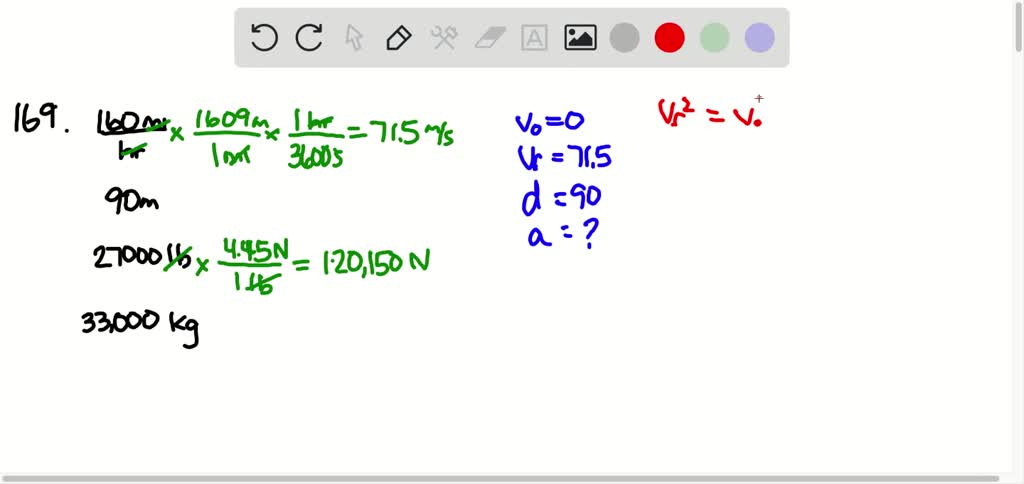 169.
160 mi/hr × 1609 m/1 mi × 1 hr/3600 s = 71.5 m/s
90m
27000 lb × 4.45N/1 lb = 120,150 N
33,000 kg
v₀ = 0
vf = 71.5
d = 90
a = ?
vf² = v₀
A